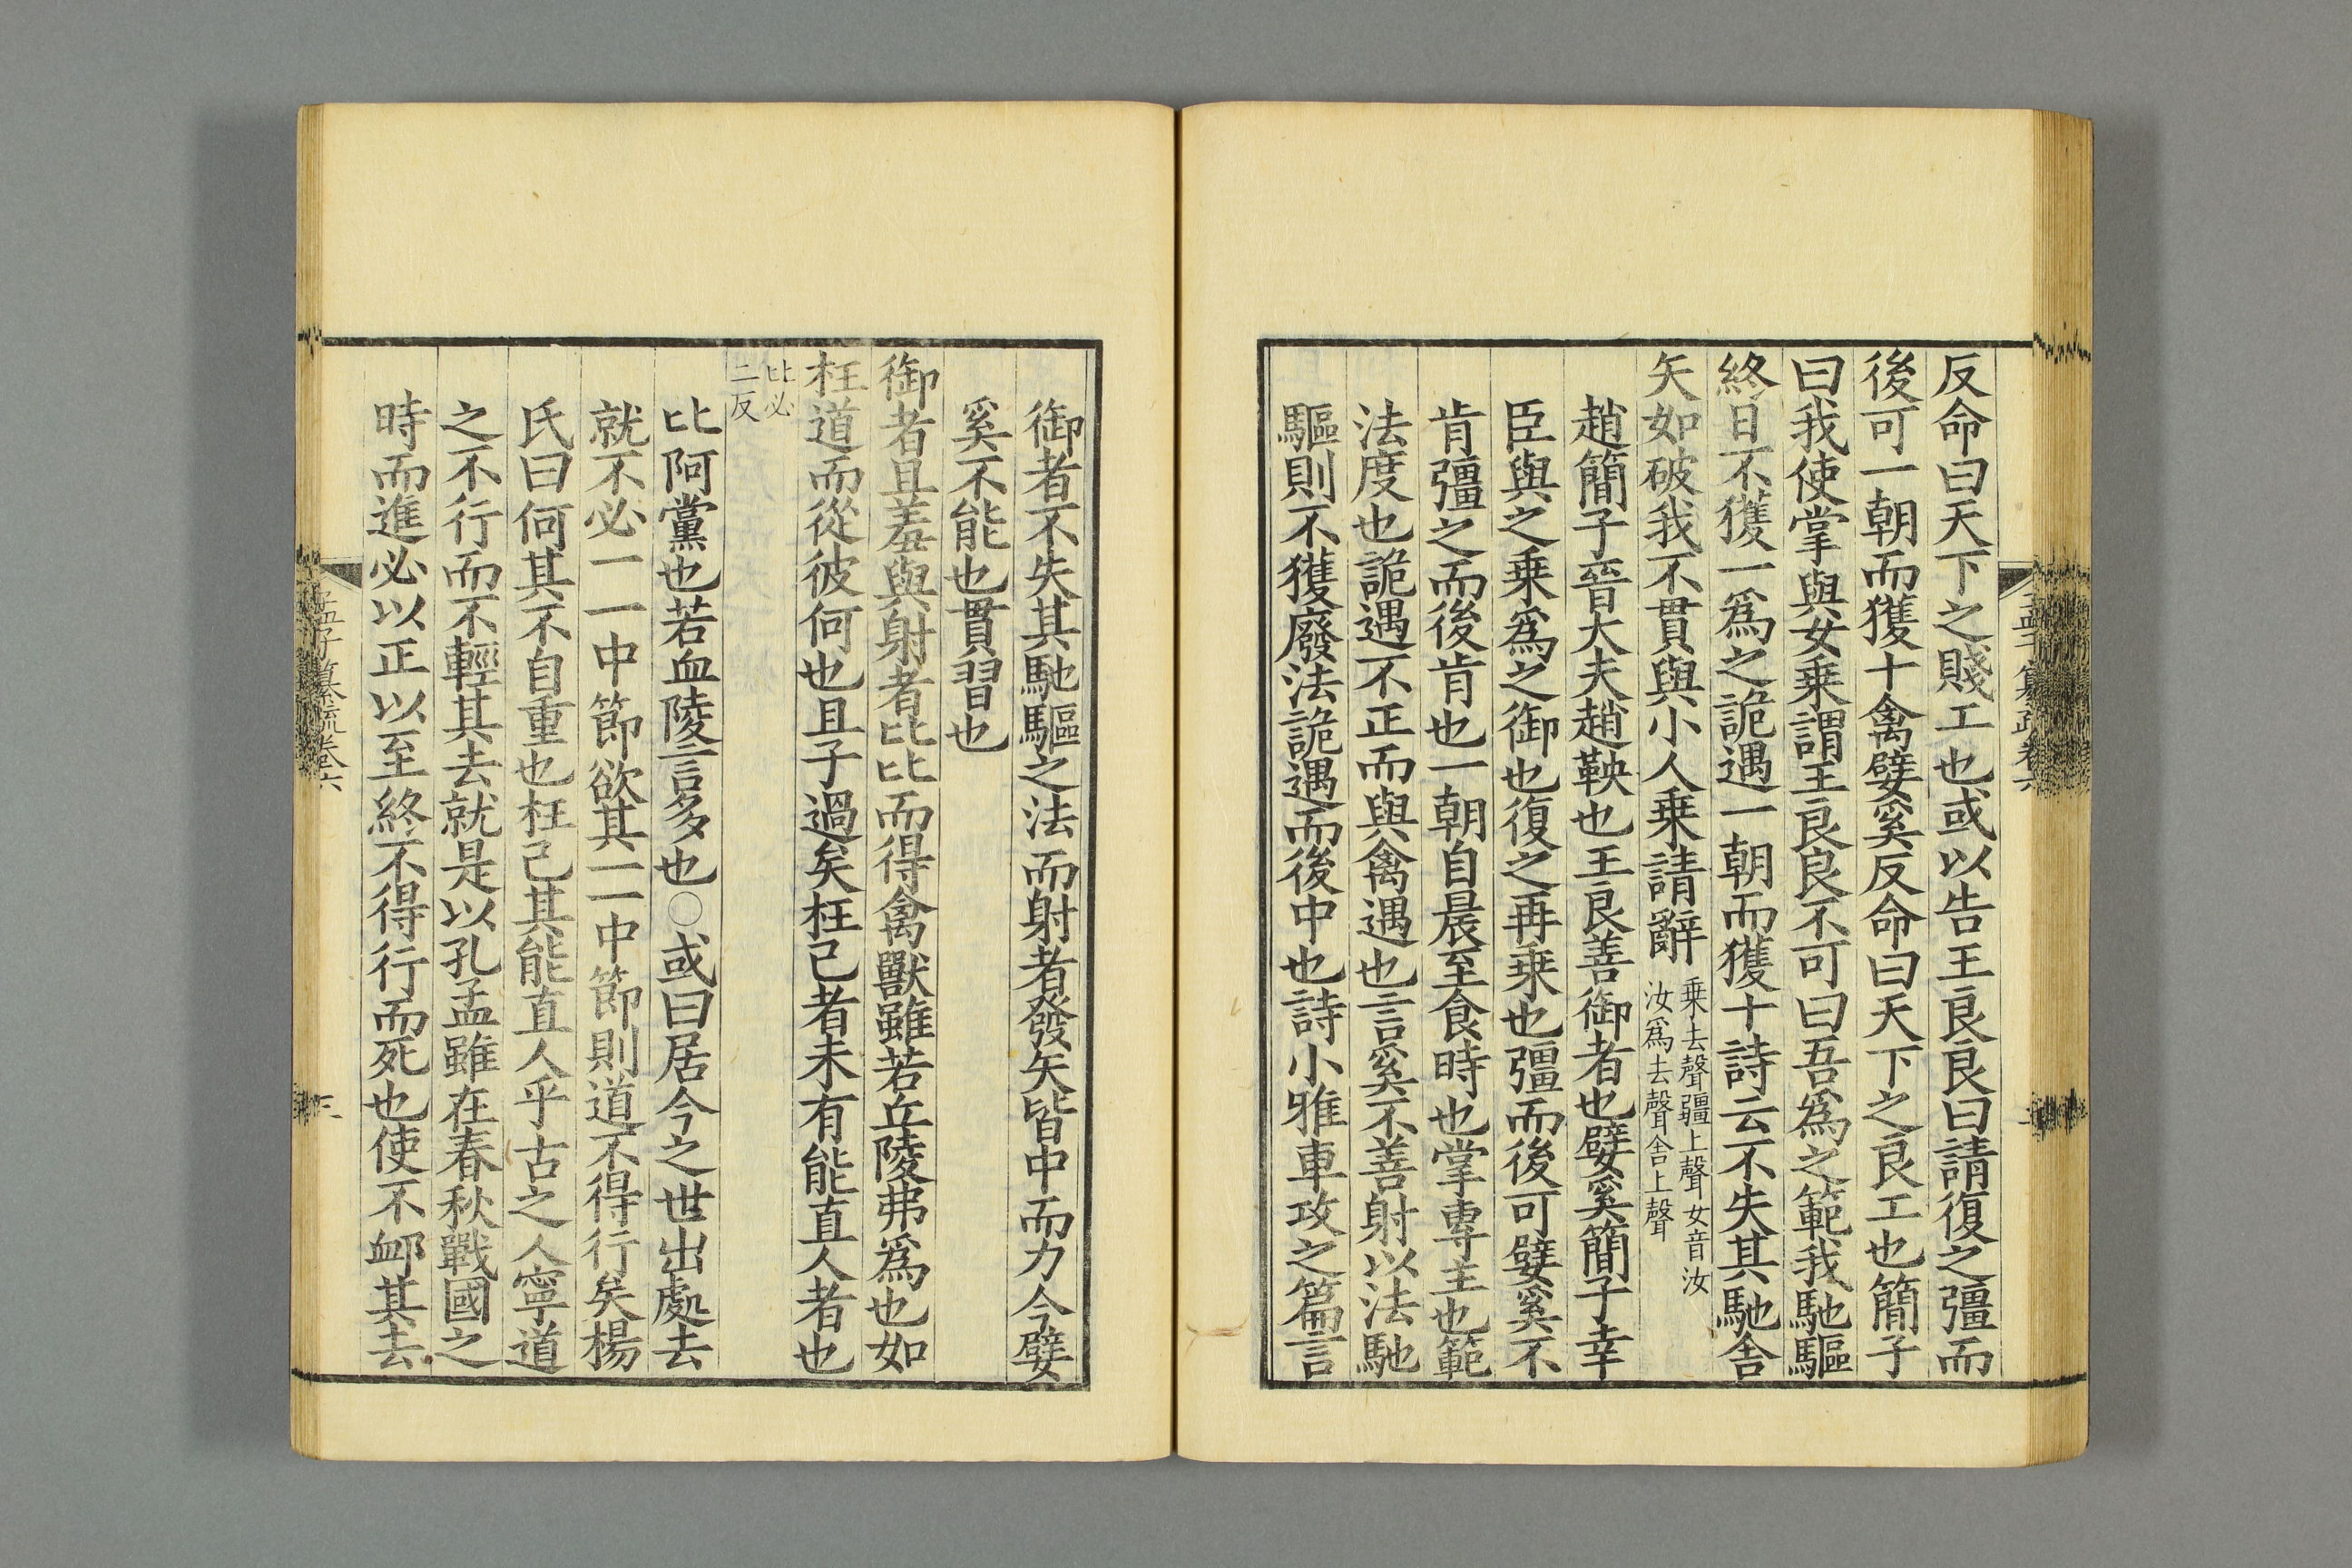 反命曰天下之賤工也或以告王良良曰請復之彊而
後可一朝而獲十禽嬖奚反命曰天下之良工也簡子
曰我使掌與女乘謂王良良不可曰吾爲之範我馳驅
終日不獲一爲之詭遇一朝而獲十詩云不失其馳舍
矢如破我不貫與小人乘請辭
乘去聲彊上聲女音汝
汝爲去聲舍上聲
趙簡子晉大夫趙鞅也王良善御者也嬖奚簡子幸
臣與之乘爲之御也復之再乘也彊而後可嬖奚不
肯彊之而後肯也一朝自晨至食時也掌專主也範
法度也詭遇不正而與禽遇也言奚不善射以法馳
驅則不獲廢法詭遇而後中也詩小雅車攻之篇言
御者不失其馳驅之法而射者發矢皆中而力今嬖
奚不能也貫習也
御者且羞與射者比比而得禽獸雖若丘陵弗爲也如
枉道而從彼何也且子過矣枉己者未有能直人者也
比必
二反
比阿黨也若血陵言多也○或曰居今之世出處去
就不必一一中節欲其一一中節則道不得行矣楊
氏曰何其不自重也枉己其能直人乎古之人寧道
之不行而不輕其去就是以孔孟雖在春秋戰國之
時而進必以正以至終不得行而死也使不衈其去
孟子纂疏卷六